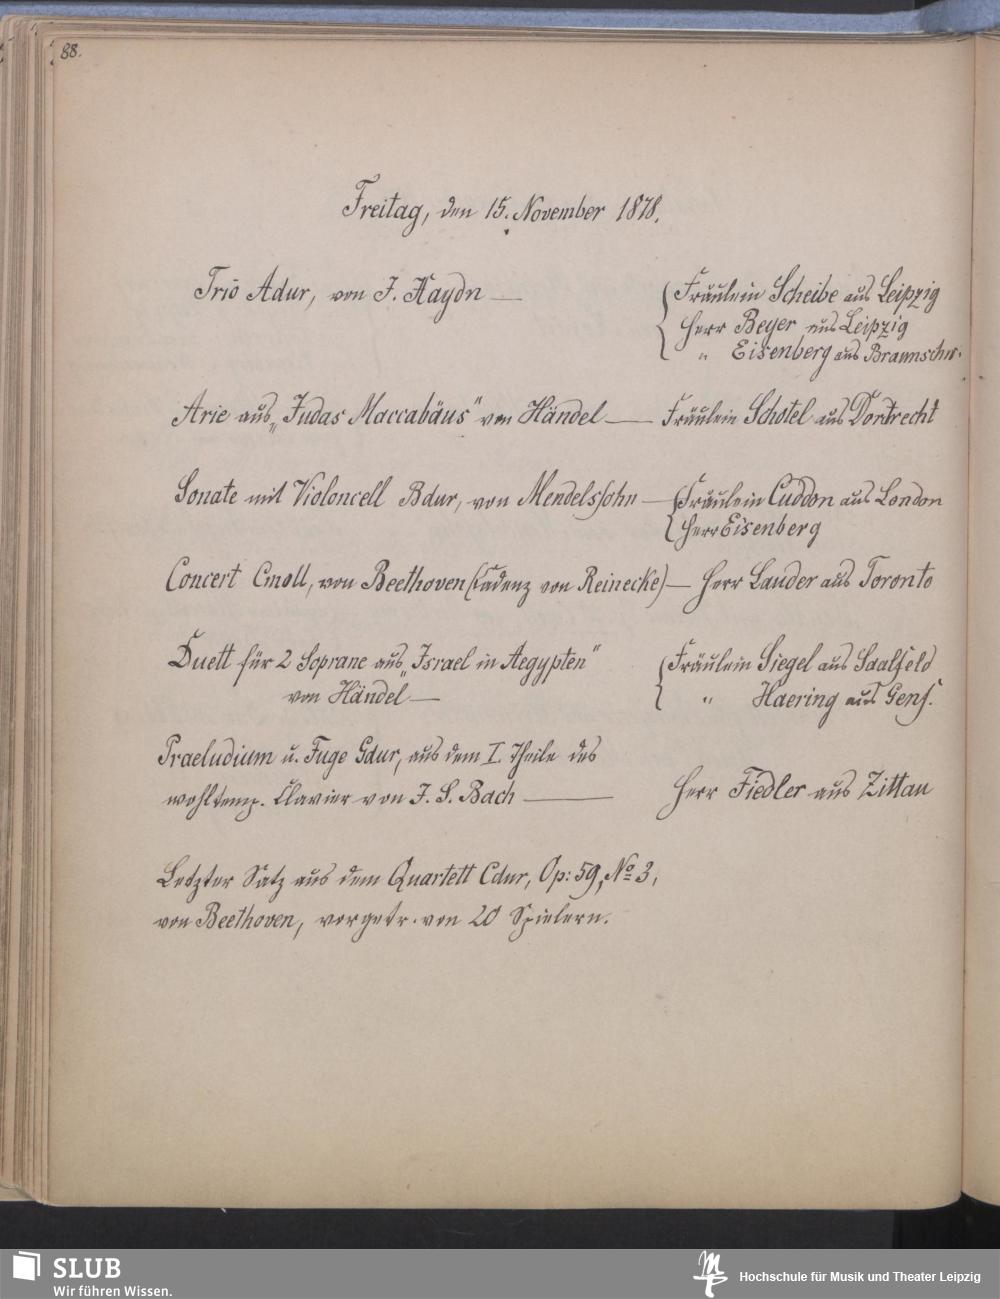 88.
Freitag, den 15. November 1878.
Trio Adur, von J. Haydn — Fräulein Scheibe aus Leipzig
Herr Beyer aus Leipzig
" Eisenberg aus Braunschw.
Arie aus „Judas Maccabäus" von Händel — Fräulein Schotel aus Dortrecht
Sonate mit Violoncell Bdur, von Mendelssohn — Fräulein Cuddon aus London
Herr Eisenberg
Concert Cmoll, von Beethoven (Cadenz von Reinecke) — Herr Lauder aus Toronto
Duett für 2 Soprane aus „Israel in Aegypten" Fräulein Siegel aus Saalfeld
von Händel — " Haering aus Genf.
Praeludium u. Fuge Gdur, aus dem I. Theile des
wohltemp. Clavier von J. S. Bach — Herr Fiedler aus Zittau
Letzter Satz aus dem Quartett Cdur, Op: 59, No 3,
von Beethoven, vorgetr. von 20 Spielern.
SLUB
Wir führen Wissen.
Hochschule für Musik und Theater Leipzig